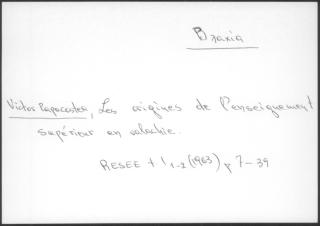 Braxia
Victor Papacostea, Les origines de l'enseignement
supérieur en valachie.
RESEE t. 1 1-2 (1963) p 7-39